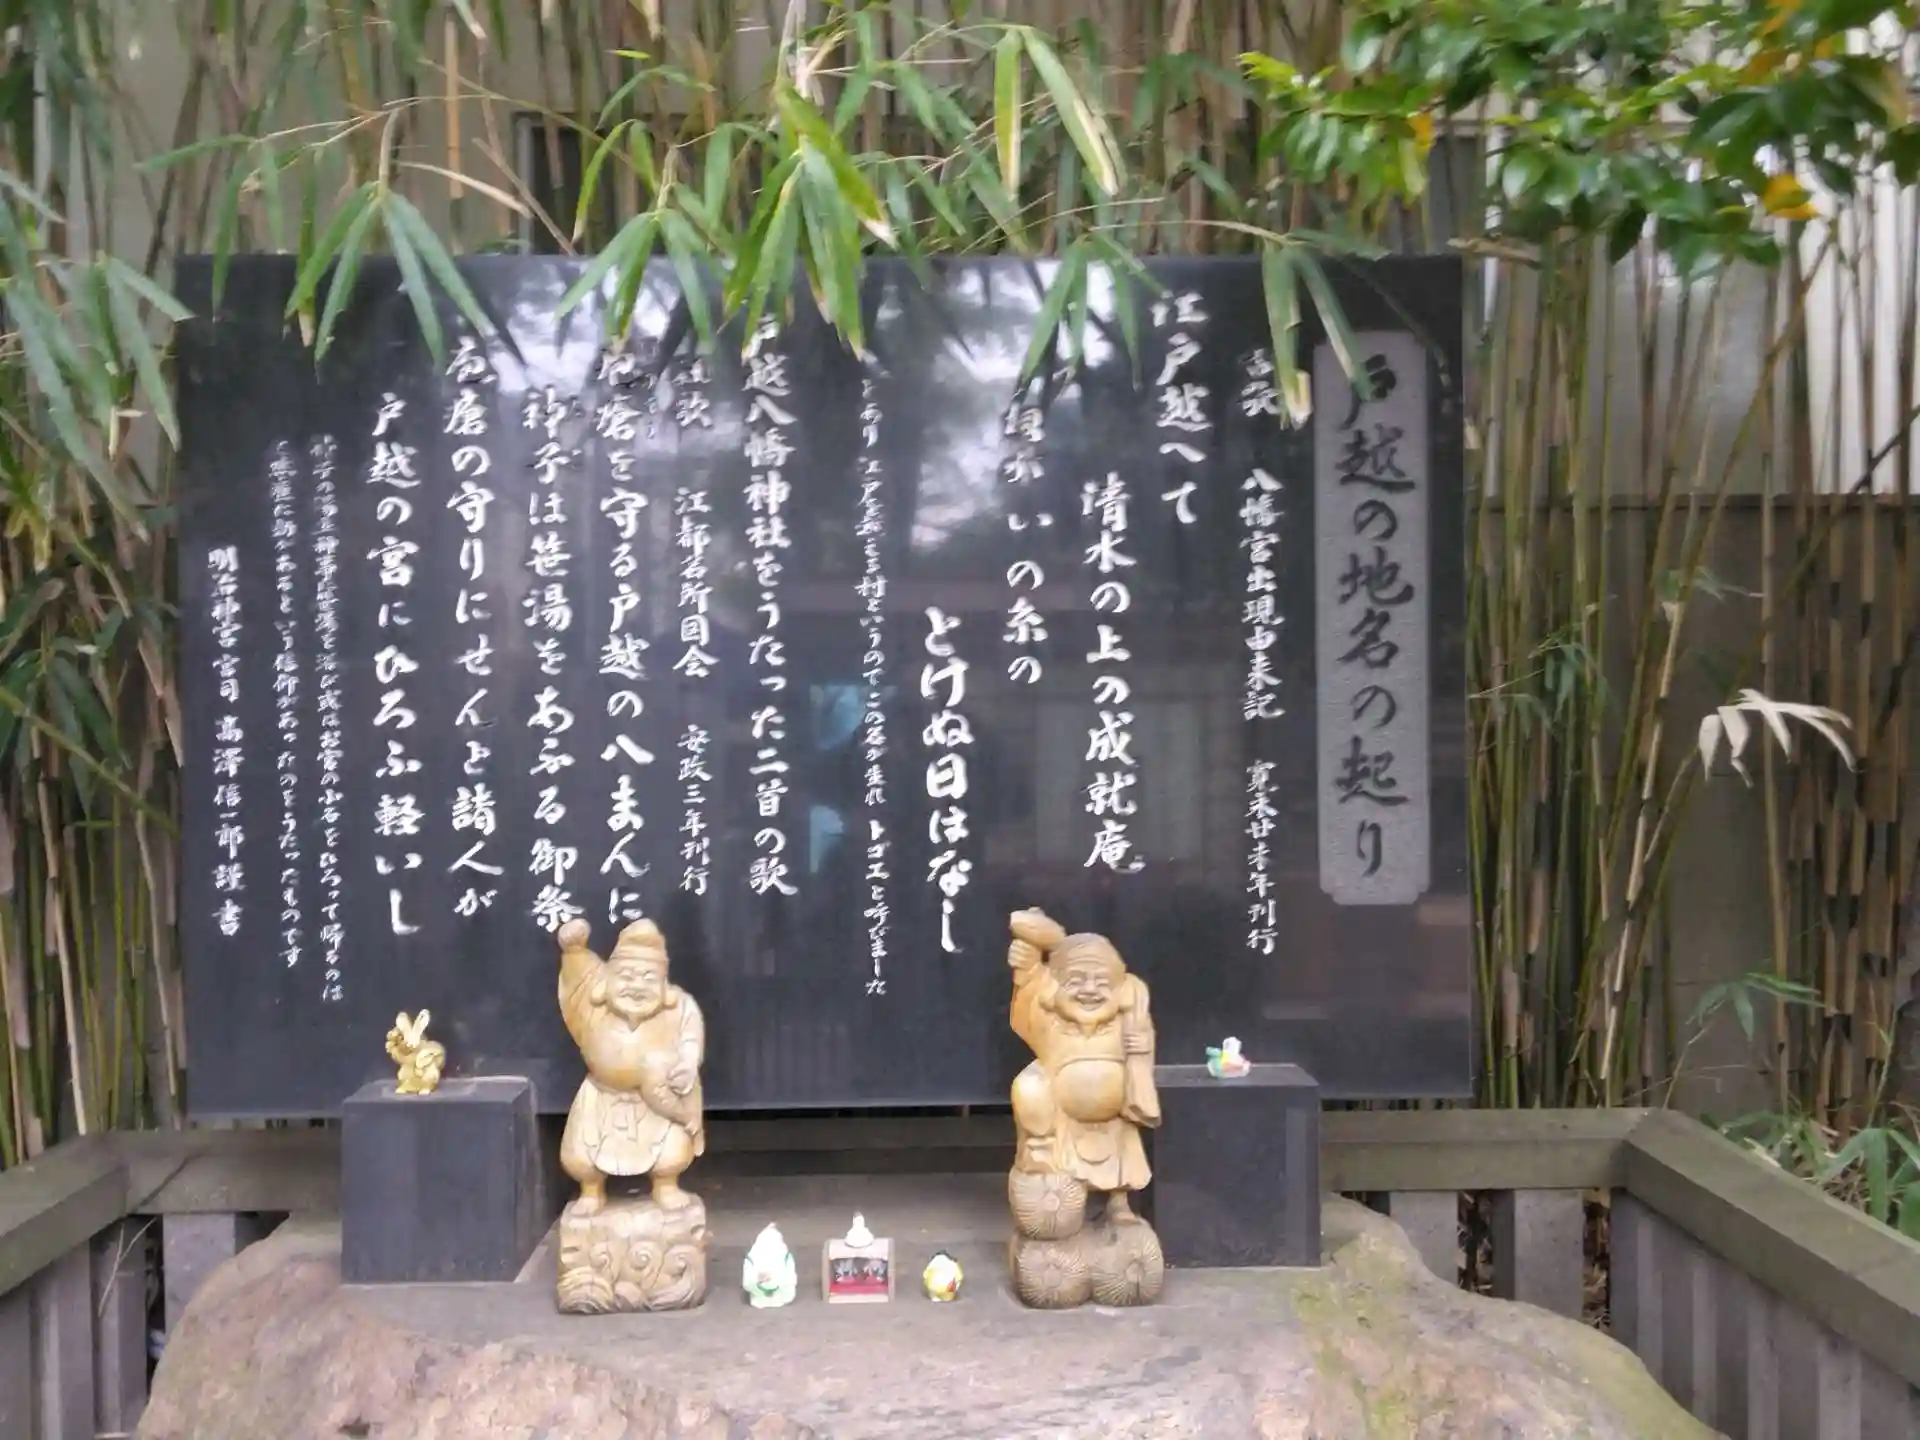 戸越の地名の起り
古歌 八幡宮出現由来記 寛永廿未年刊行
江戸越へて
清水の上の成就庵
いの糸の
とけぬ日はなし
とあり江戸を越える村というのでこの名が生れ トゴエと呼びました
戸越八幡神社をうたった二首の歌
江都名所図会 安政三年刊行
疱瘡を守る戸越の八まんに
神子は笹湯をあふる御祭
疱瘡の守りにせんと諸人が
戸越の宮にひろふ軽いし
神子の笹湯を浴び或はお宮の小石をひろって帰るのは
に効があるという信仰があったのをうたったものです
明治神宮宮司 高澤信一郎謹書